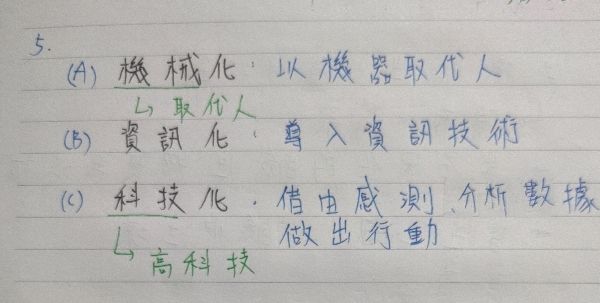 5.
(A) 機械化：以機器取代人
↳取代人
(B) 資訊化：導入資訊技術
(C) 科技化．借由感測、分析數據
做出行動
↳高科技